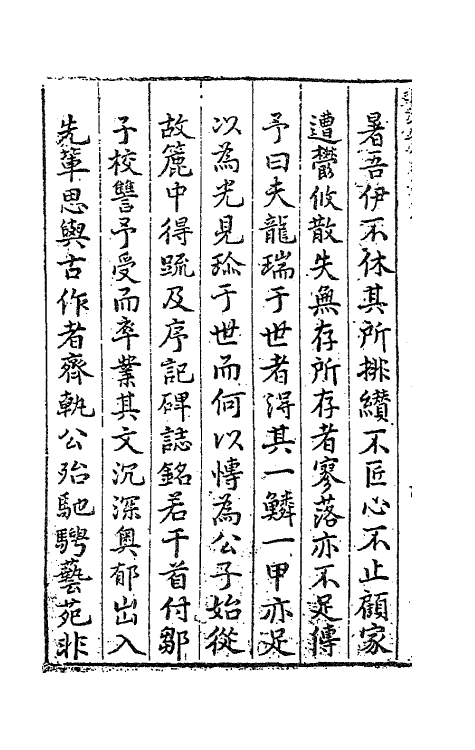 暑吾伊不休其所排纘不匠心不止顧家
遭鬱攸散失無存所存者寥落亦不足傳
予曰夫龍瑞于世者得其一鱗一甲亦足
以為光見珍于世而何以慱為公子始從
故簏中得䟽及序記碑誌銘若干首付鄒
子校讐予受而卒業其文沉深奥郁出入
先軰思與古作者齊軌公殆馳騁藝苑非